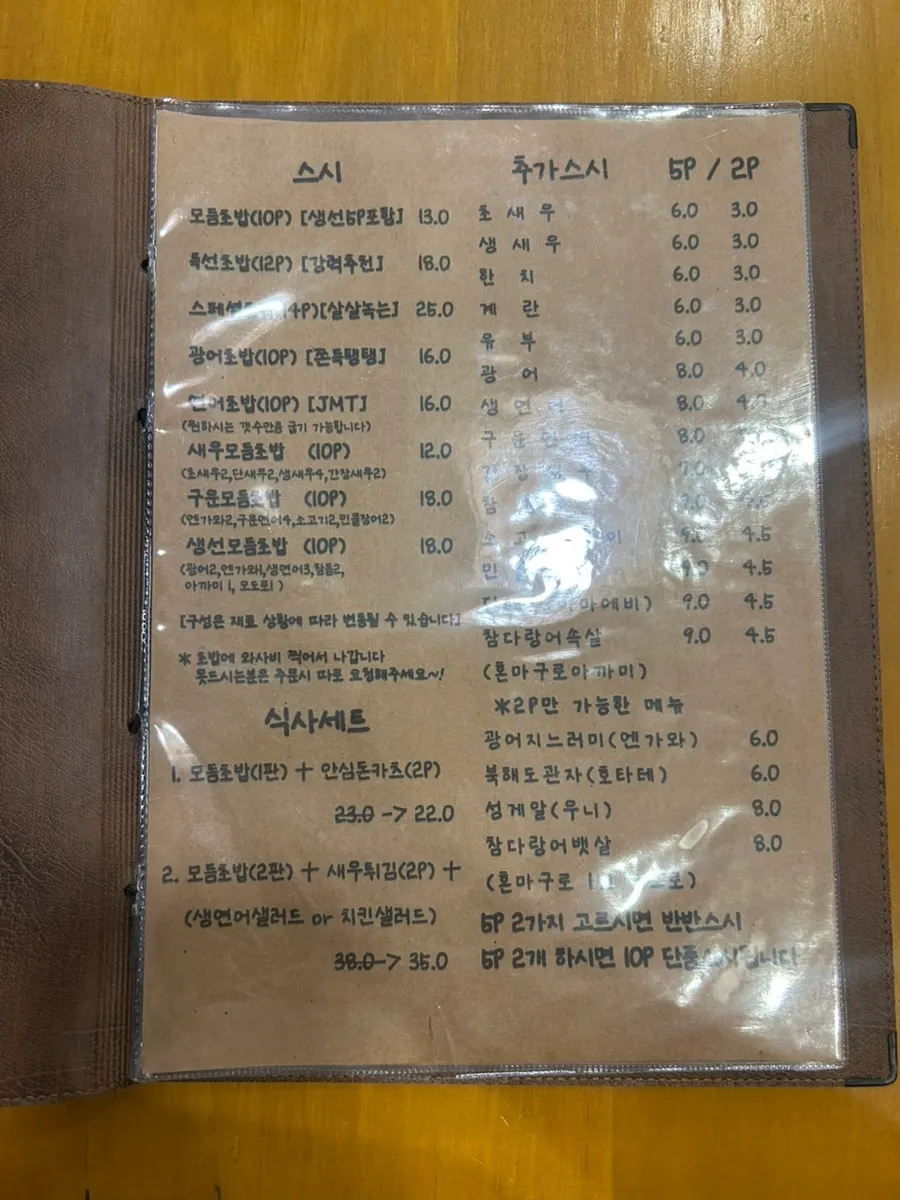 스시
모듬초밥(10P) [생선5P포함] 13.0
특선초밥(12P) [강력추천] 18.0
4P)[살살녹는] 25.0
광어초밥(10P) [쫀득탱탱] 16.0
연어초밥(10P) [JMT] 16.0
(원하시는 갯수만큼 굽기 가능합니다)
새우모듬초밥 (10P) 12.0
(초새우2,단새우2,생새우4,간장새우2)
구운모듬초밥 (10P) 18.0
(엔가와2,구운연어4,소고기2,민물장어2)
생선모듬초밥 (10P) 18.0
(광어2,엔가와1,생연어3,참돔2,
아까미1, 오도로1)
[구성은 재료 상황에 따라 변동될 수 있습니다]
* 초밥에 와사비 찍어서 나갑니다
못드시는분은 주문시 따로 요청해주세요~!
식사세트
1. 모듬초밥(1판) + 안심돈카츠(2P)
23.0 -> 22.0
2. 모듬초밥(2판) + 새우튀김(2P) +
(생연어샐러드 or 치킨샐러드)
38.0-> 35.0
추가스시 5P / 2P
초새우 6.0 3.0
생새우 6.0 3.0
한치 6.0 3.0
계란 6.0 3.0
유부 6.0 3.0
광어 8.0 4.0
생연어 8.0 4.0
구운연어 8.0
9.0 4.5
9.0 4.5
9.0 4.5
참다랑어속살 9.0 4.5
(혼마구로아까미)
*2P만 가능한 메뉴
광어지느러미(엔가와) 6.0
북해도관자(호타테) 6.0
성게알(우니) 8.0
참다랑어뱃살 8.0
(혼마구로
5P 2가지 고르시면 반반스시
5P 2개 하시면 10P